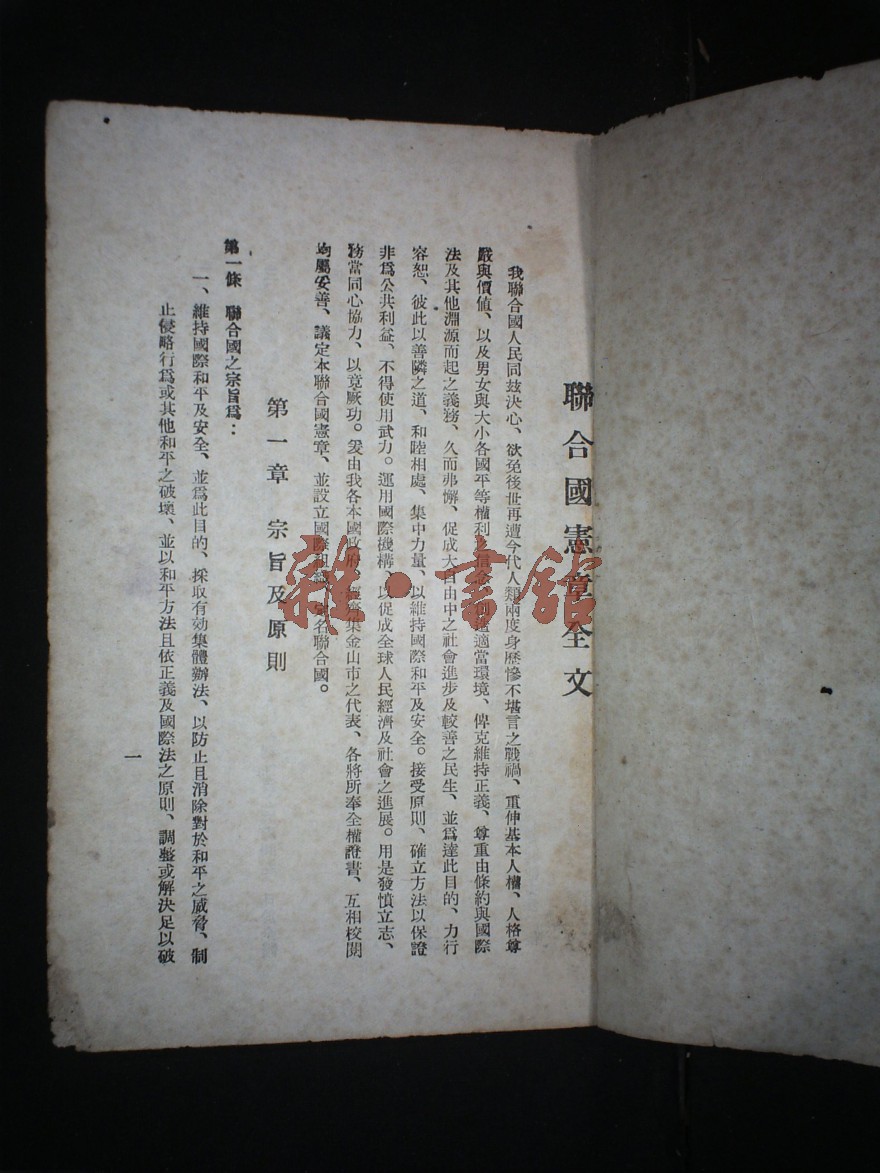 聯合國憲章全文
我聯合國人民同茲決心、欲免後世再遭今代人類兩度身歷慘不堪言之戰禍、重伸基本人權、人格尊
嚴與價値、以及男女與大小各國平等權利之信念、創造適當環境、俾克維持正義、尊重由條約與國際
法及其他淵源而起之義務、久而弗懈、促成大自由中之社會進步及較善之民生、並爲達此目的、力行
容恕、彼此以善隣之道、和睦相處、集中力量、以維持國際和平及安全。接受原則、確立方法以保證
非爲公共利益、不得使用武力。運用國際機構、以促成全球人民經濟及社會之進展。用是發憤立志、
務當同心協力、以竟厥功。爰由我各本國政府、經齊集金山市之代表、各將所奉全權證書、互相校閱
均屬妥善、議定本聯合國憲章、並設立國際組織、定名聯合國。
第一章 宗旨及原則
第一條 聯合國之宗旨爲：
一、維持國際和平及安全、並爲此目的、採取有効集體辦法、以防止且消除對於和平之威脅、制
止侵略行爲或其他和平之破壞、並以和平方法且依正義及國際法之原則、調整或解決足以破
一
雜·書館